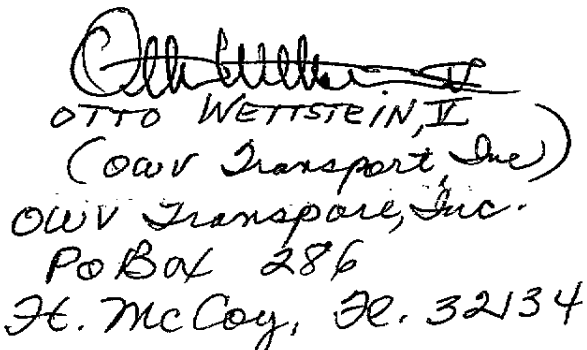 Otto Wettstein V
OTTO WETTSTEIN, V
(OWV Transport, Inc)
OWV Transport, Inc.
PO Box 286
Ft. McCoy, Fl. 32134